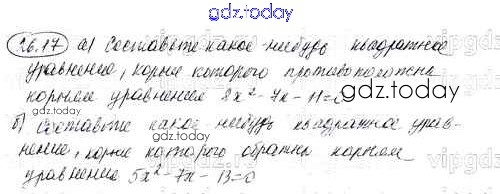 gdz.today
26.17 а) Составьте какое-нибудь квадратное
уравнение, корни которого противоположны
корням уравнения 8x²-7x-11=0
gdz.today
б) Составьте какое нибудь квадратное урав-
нение, корни которого обратны корням
уравнение 5x²-7x-13=0
gdz.today